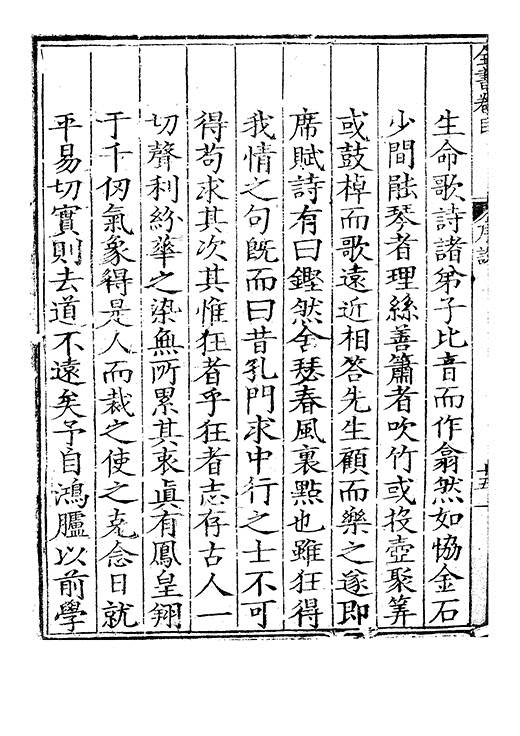 生命歌詩諸弟子比音而作翕然如恊金石
少間能琴者理絲善簫者吹竹或投壺聚筭
或鼓棹而歌遠近相答先生顧而樂之遂即
席賦詩有曰鏗然舍瑟春風裏點也雖狂得
我情之句既而曰昔孔門求中行之士不可
得苟求其次其惟狂者乎狂者志存古人一
切聲利紛華之染無所累其衷真有鳳皇翔
于千仞氣象得是人而裁之使之克念日就
平易切實則去道不遠矣予自鴻臚以前學